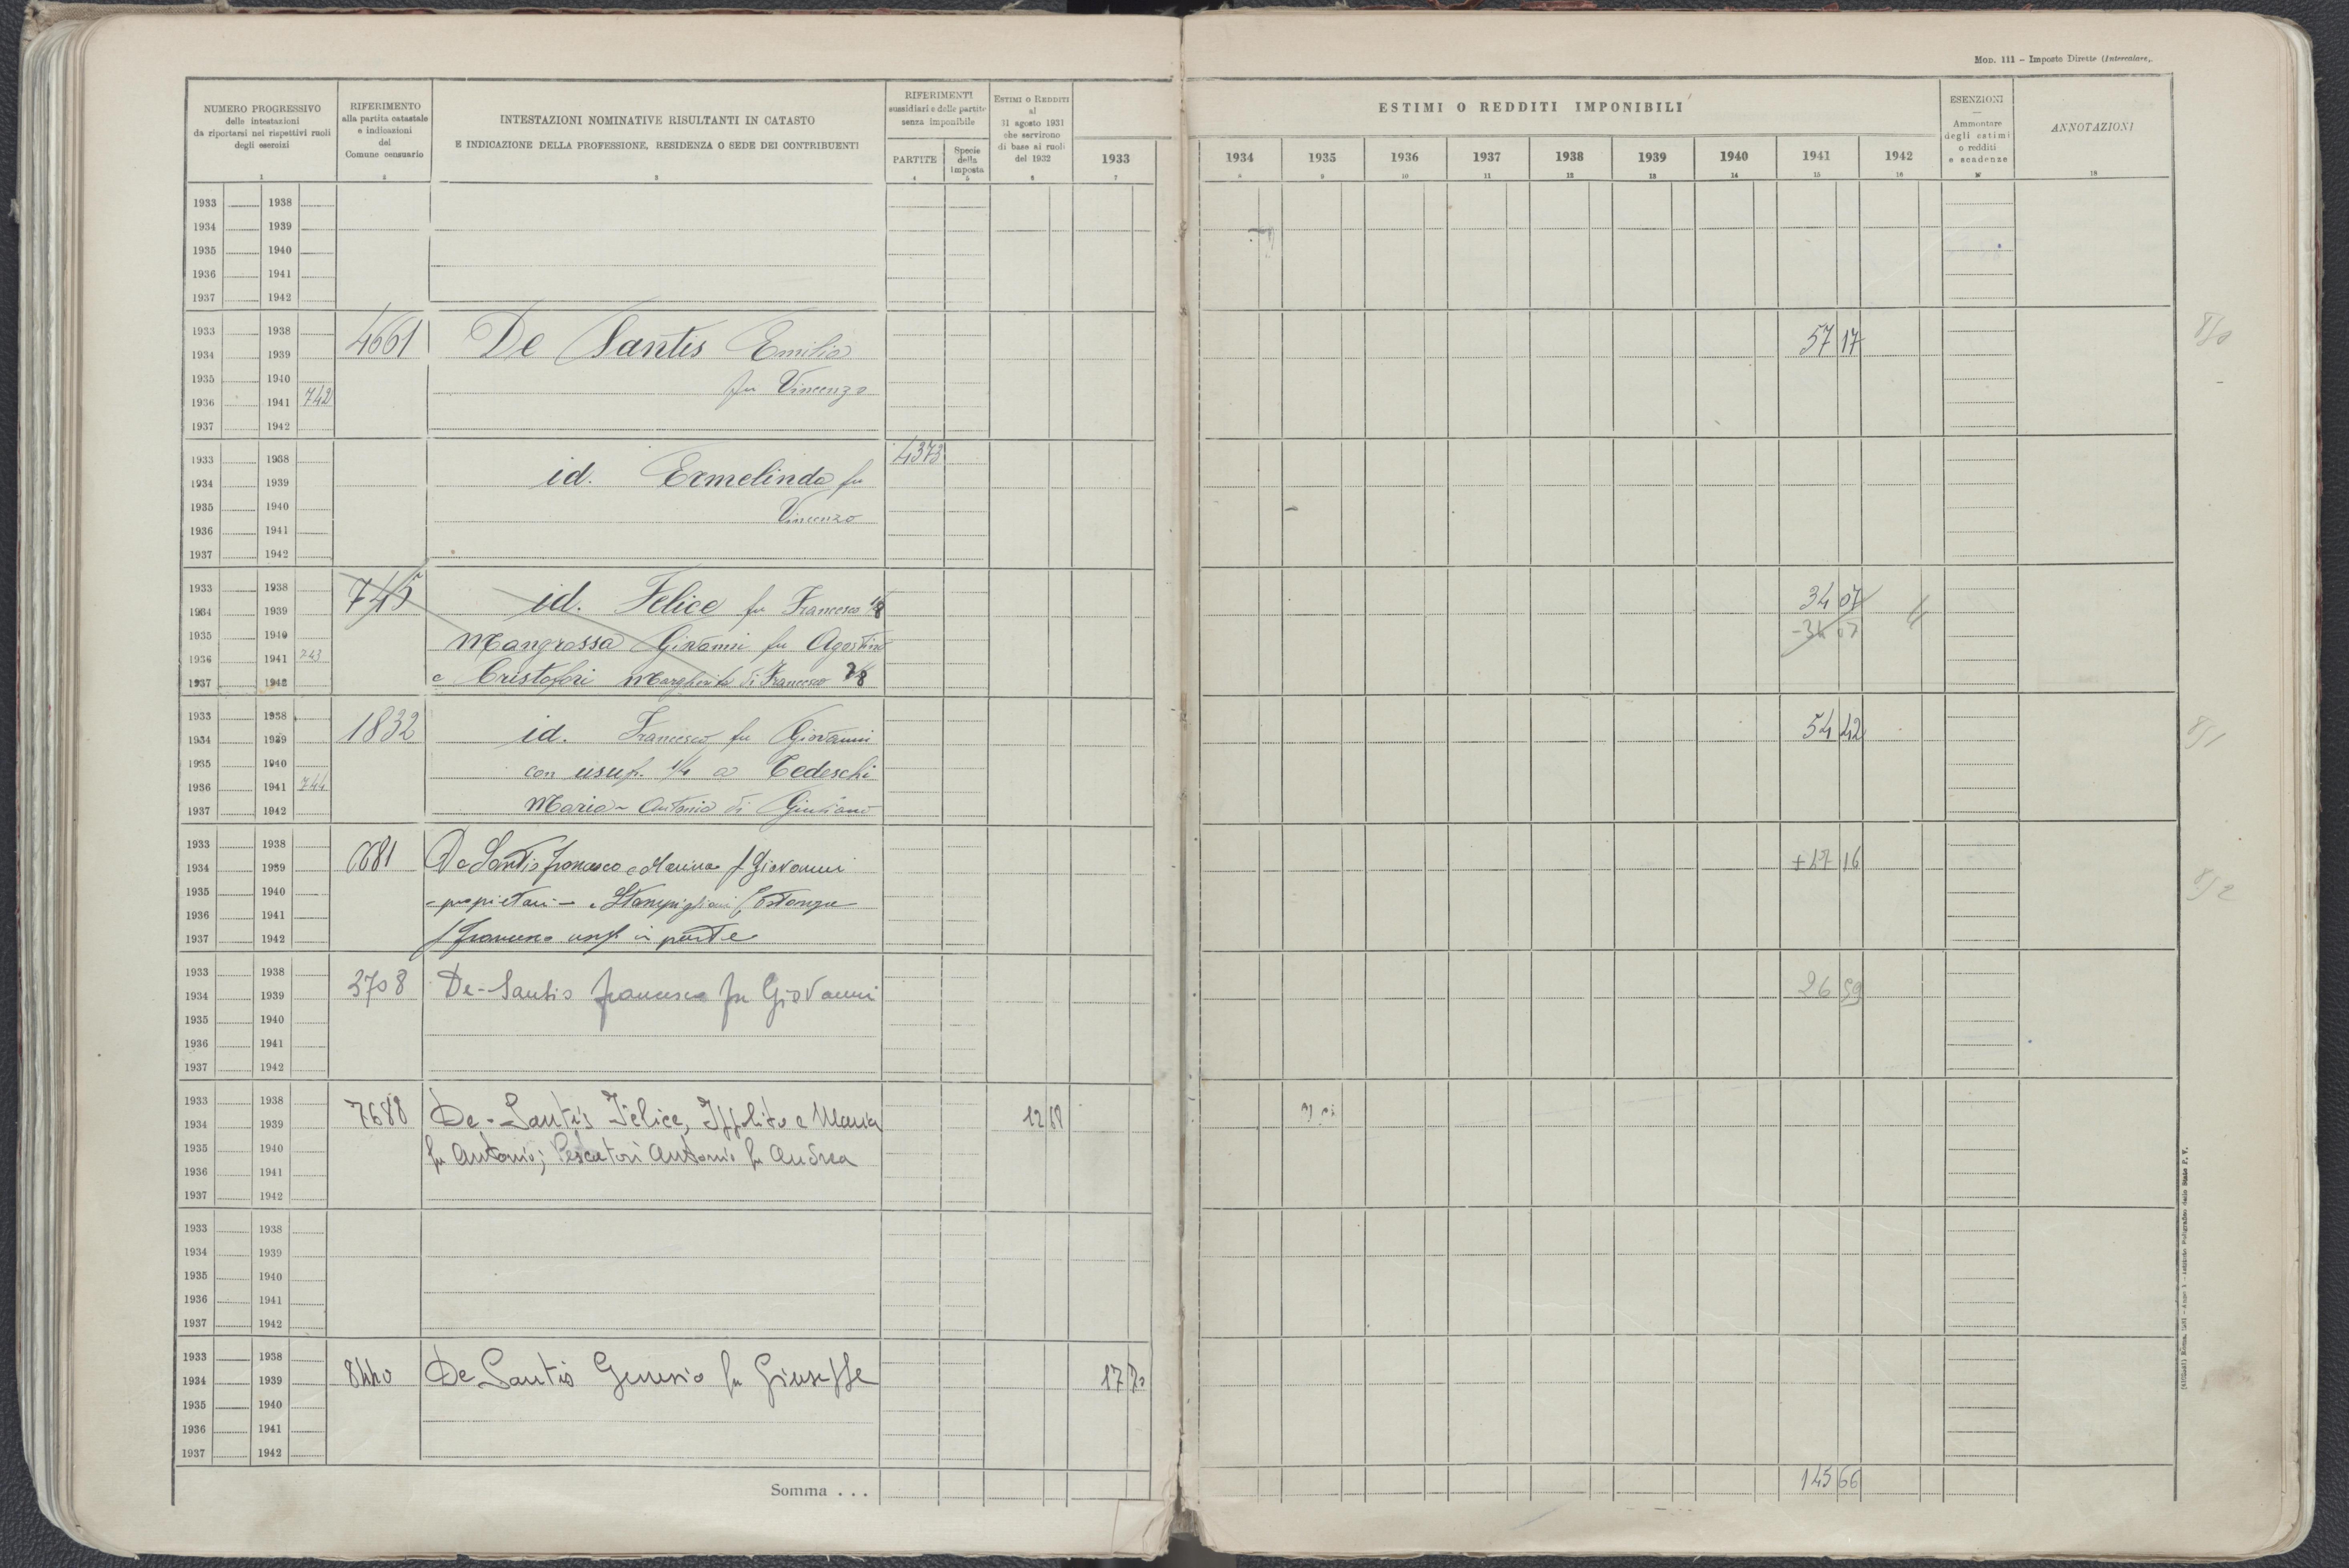 Mod. 111 - Imposte Dirette (Intercalare).
NUMERO PROGRESSIVO
delle intestazioni
da riportarsi nei rispettivi ruoli
degli esercizi
1
RIFERIMENTO
alla partita catastale
e indicazioni
del
Comune censuario
2
INTESTAZIONI NOMINATIVE RISULTANTI IN CATASTO
E INDICAZIONE DELLA PROFESSIONE, RESIDENZA O SEDE DEI CONTRIBUENTI
3
RIFERIMENTI
sussidiari e delle partite
senza imponibile
PARTITE
4
Specie
della
imposta
5
ESTIMI O REDDITI
al
31 agosto 1931
che servirono
di base ai ruoli
del 1932
6
1933
7
ESTIMI O REDDITI IMPONIBILI
1934 1935 1936 1937 1938 1939 1940 1941 1942
8 9 10 11 12 13 14 15 16
ESENZIONI
Ammontare
degli estimi
o redditi
e scadenze
17
ANNOTAZIONI
18
1933 1938
1934 1939
1935 1940
1936 1941
1937 1942
1933 1938
1934 1939 4661 De Santis Emilio 57 17
1935 1940 fu Vincenzo
1936 1941 742
1937 1942
1933 1938 4373
1934 1939 id. Ermelinda fu
1935 1940 Vincenzo
1936 1941
1937 1942
1933 1938 745 34 07
1934 1939 id. Felice fu Francesco 1/8
1935 1940 Mangrossa Giovanni fu Agostino -34 07
1936 1941 743
1937 1942 e Cristofori Margherita di Francesco 7/8
1933 1938 1832 54 42
1934 1939 id. Francesco fu Giovanni
1935 1940 con usuf. 1/4 a Tedeschi
1936 1941 744
1937 1942 Maria Antonia di Giuliano
1933 1938
1934 1939 6681 De Santis Francesco e Marina f Giovanni + 17 16
1935 1940 - proprietari - e Stampiglioni Costanza
1936 1941
1937 1942 f Francesco usuf in parte
1933 1938
1934 1939 3708 De-Santis Francesco fu Giovanni 26 59
1935 1940
1936 1941
1937 1942
1933 1938
1934 1939 7688 De-Santis Felice, Ippolito e Maria 12 68
1935 1940 fu Antonio; Pescatori Antonio fu Andrea
1936 1941
1937 1942
1933 1938
1934 1939
1935 1940
1936 1941
1937 1942
1933 1938
1934 1939 8440 De Santis Genesio fu Giuseppe 17 70
1935 1940
1936 1941
1937 1942
Somma . . . 145 66